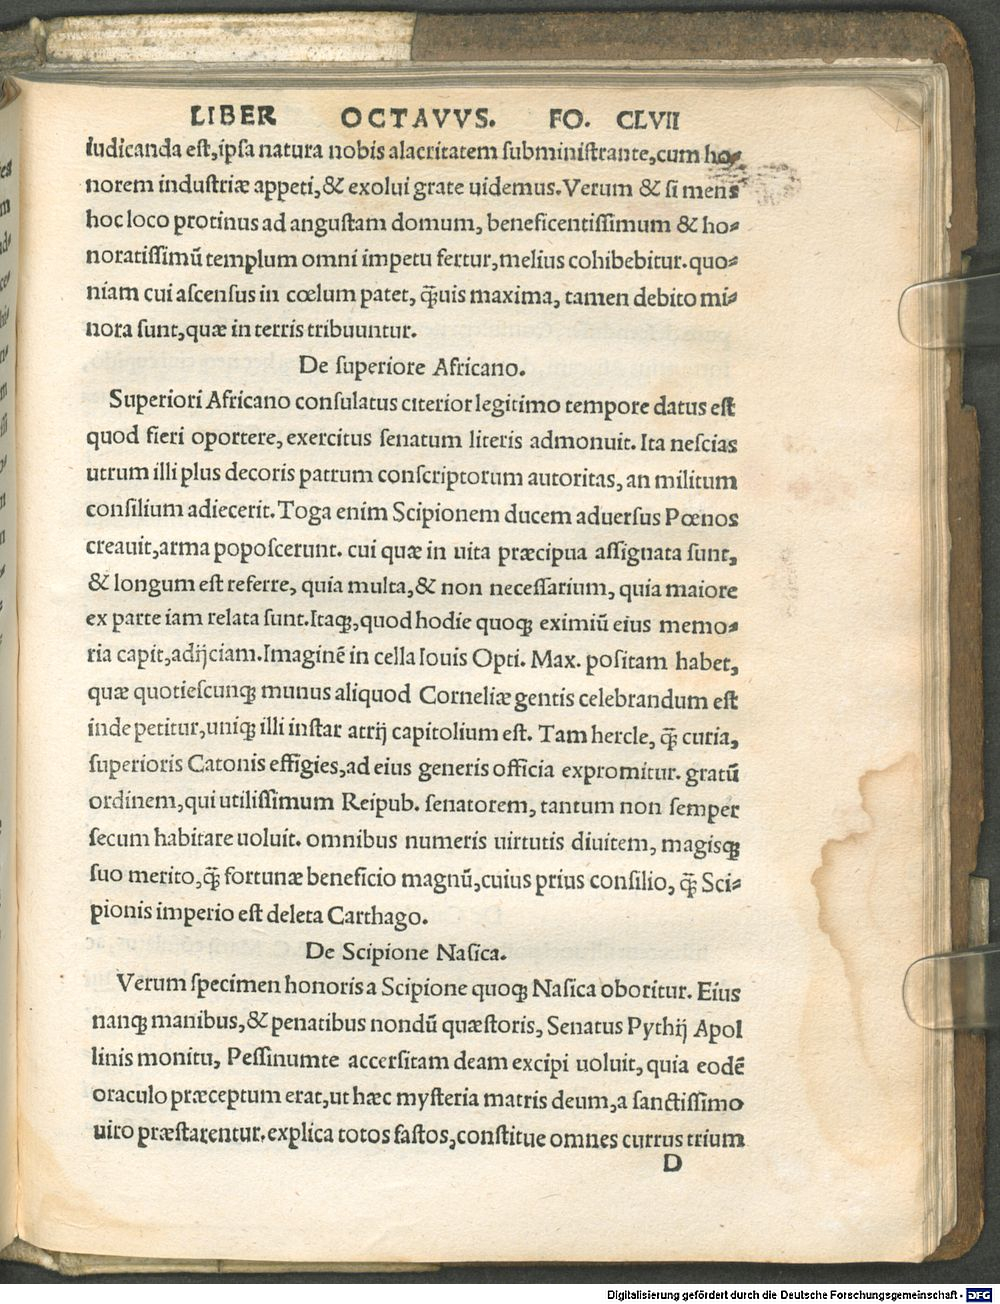 LIBER OCTAVVS. FO. CLVII
iudicanda eſt,ipſa natura nobis alacritatem ſubminiſtrante,cum ho⸗
norem induſtriæ appeti,& exolui grate uidemus.Verum & ſi mens
hoc loco protinus ad anguſtam domum, beneficentiſſimum & ho⸗
noratiſſimū templum omni impetu fertur,melius cohibebitur.quo⸗
niam cui aſcenſus in cœlum patet, ꝗ̄uis maxima, tamen debito mi⸗
nora ſunt,quæ in terris tribuuntur.
De ſuperiore Africano.
Superiori Africano conſulatus citerior legitimo tempore datus eſt
quod fieri oportere, exercitus ſenatum literis admonuit. Ita neſcias
utrum illi plus decoris patrum conſcriptorum autoritas, an militum
conſilium adiecerit. Toga enim Scipionem ducem aduerſus Pœnos
creauit,arma popoſcerunt. cui quæ in uita præcipua aſſignata ſunt,
& longum eſt referre, quia multa,& non neceſſarium, quia maiore
ex parte iam relata ſunt.Itaqꝫ,quod hodie quoqꝫ eximiū eius memo⸗
ria capit,adijciam.Imaginē in cella Iouis Opti. Max. poſitam habet,
quæ quotieſcunqꝫ munus aliquod Corneliæ gentis celebrandum eſt
inde petitur,uniqꝫ illi inſtar atrij capitolium eſt. Tam hercle, ꝗ̄ curia,
ſuperioris Catonis effigies,ad eius generis officia expromitur. gratū
ordinem,qui utiliſſimum Reipub. ſenatorem, tantum non ſemper
ſecum habitare uoluit. omnibus numeris uirtutis diuitem, magisqꝫ
ſuo merito,ꝗ̄ fortunæ beneficio magnū,cuius prius conſilio, ꝗ̄ Sci⸗
pionis imperio eſt deleta Carthago.
De Scipione Naſica.
Verum ſpecimen honoris a Scipione quoqꝫ Naſica oboritur. Eius
nanqꝫ manibus,& penatibus nondū quæſtoris, Senatus Pythij Apol
linis monitu, Peſſinumte accerſitam deam excipi uoluit, quia eodē
oraculo præceptum erat,ut hæc myſteria matris deum,a ſanctiſſimo
uiro præſtarentur.explica totos faſtos,conſtitue omnes currus trium
D
Digitalisierung gefördert durch die Deutsche Forschungsgemeinschaft - DFG